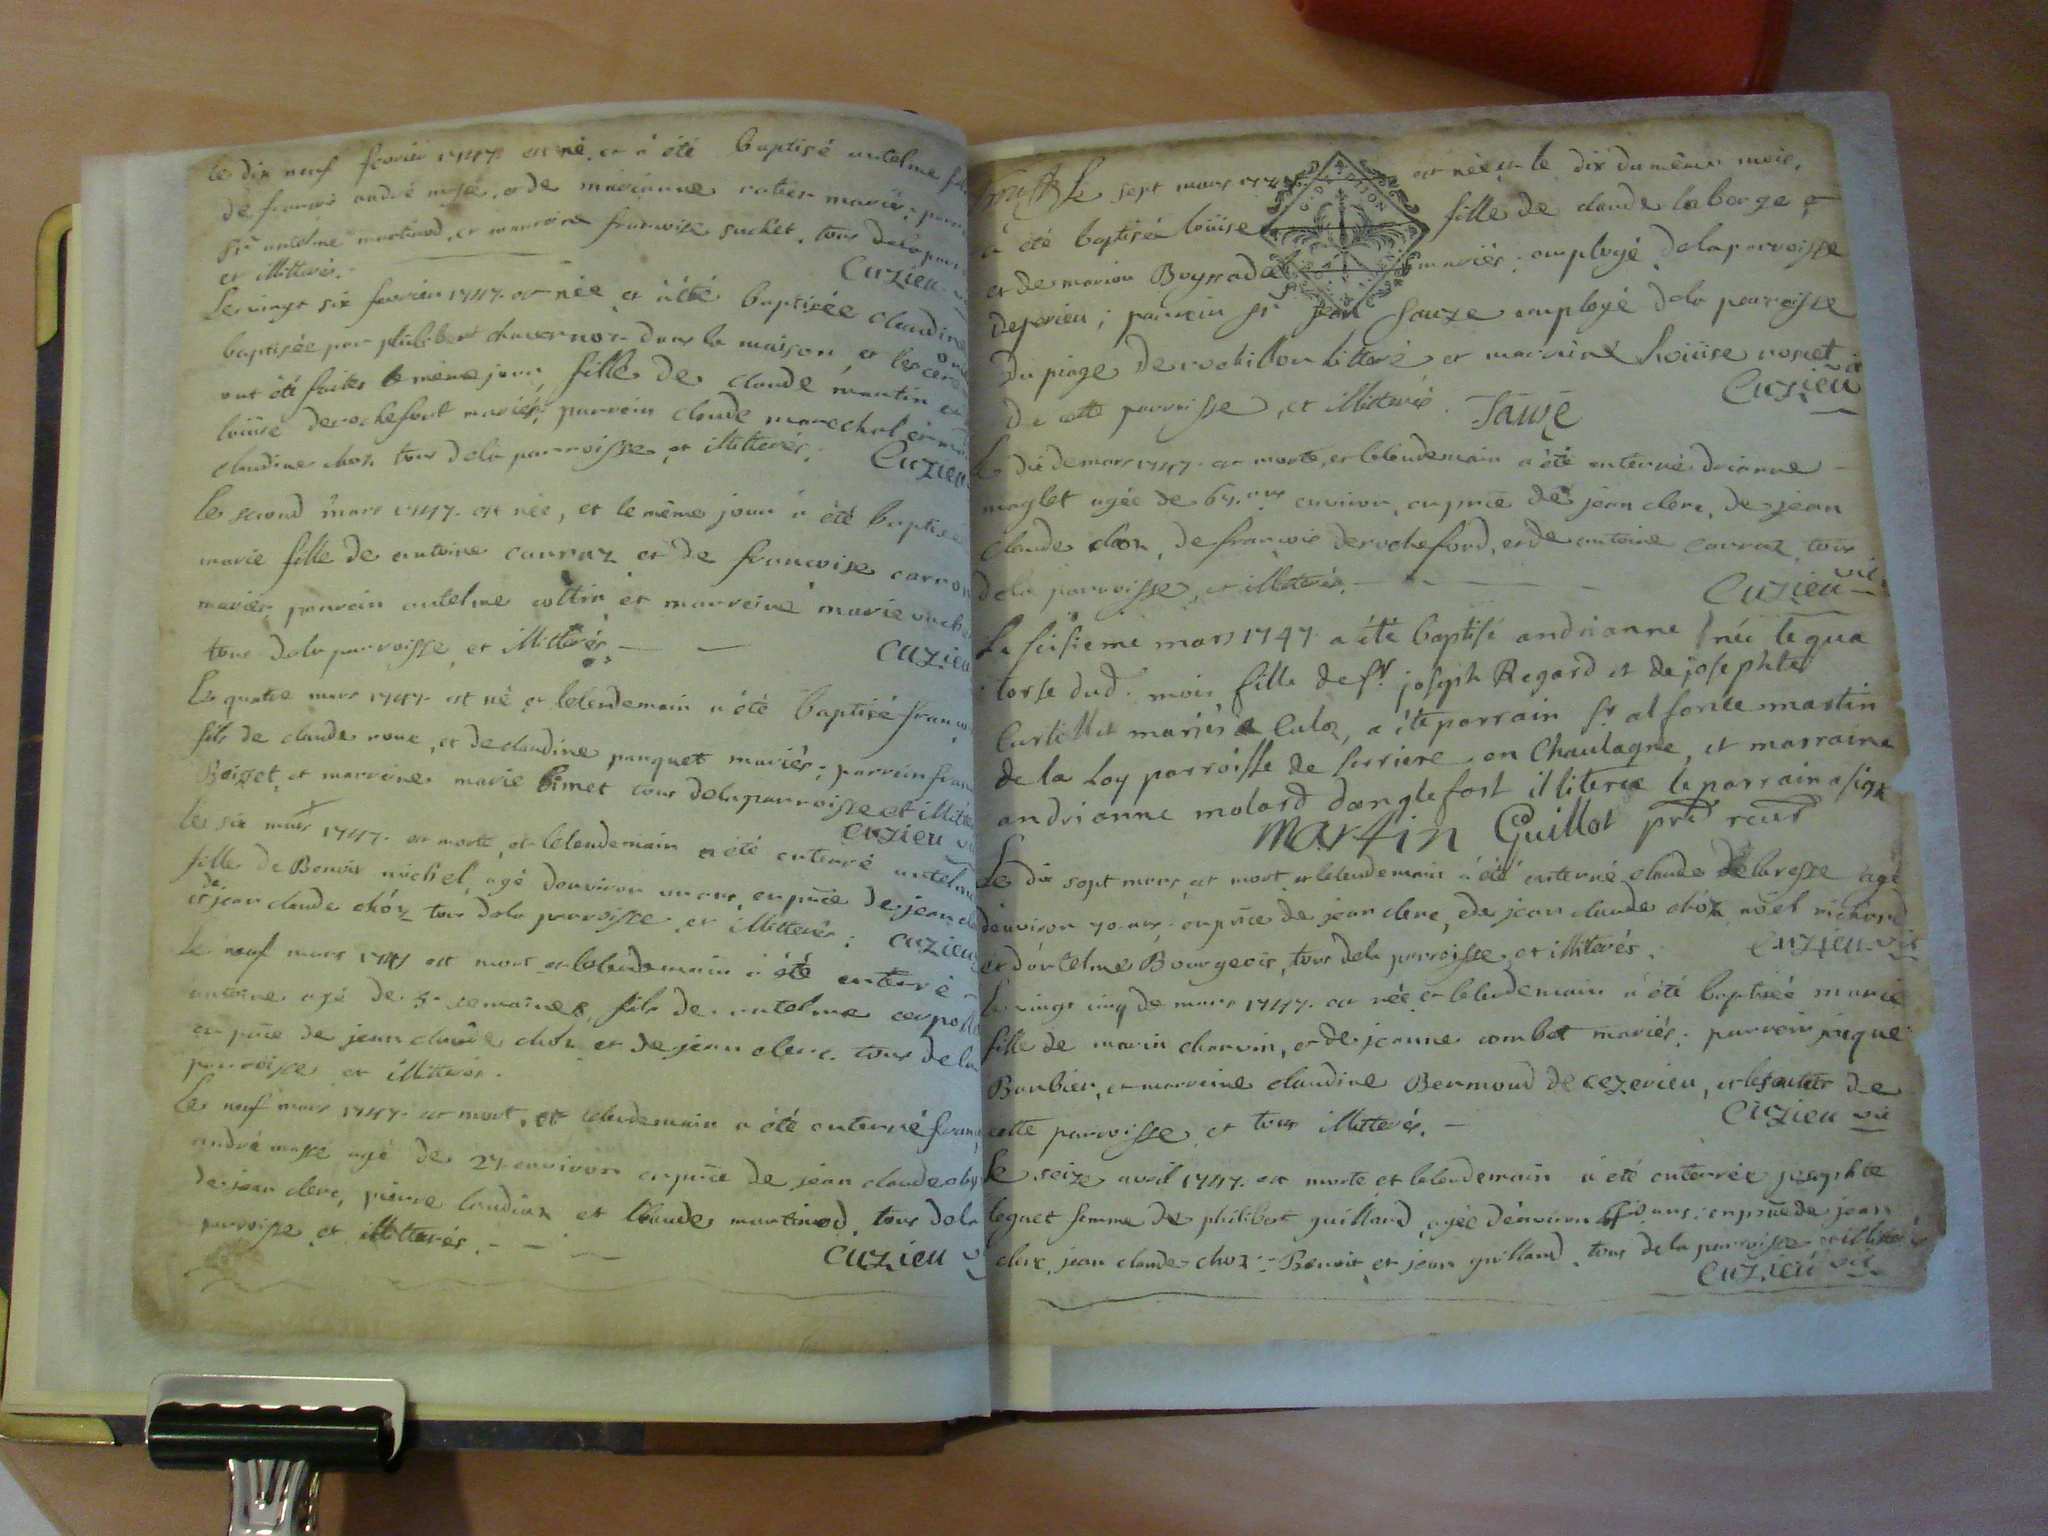 le dix neuf fevrier 1747. est né, et a été baptisé antelme
de francois andré masse, et de marianne ratier mariés; parr
sr. antelme martinod, et marreine francoise suchet, tous dela par
et illitterés.
Cuzieu
Le vingt six fevrier 1747. est née et a été baptisée claudine
baptisée par philibert chavernoz dans la maison et les cere
ont été faites le même jour, fille de claude martin et
loüise derochefort mariés; parrein claude marechal et
claudine choz, tous dela parroisse, et illitterés.
Cuzieu
Le second mars 1747. est née, et le même jour a été baptisée
marie fille de antoine carraz et de francoise carron
mariés, parrein antelme cottin et marreine marie
tous dela parroisse, et illitterés.
Cuzieu
Le quatre mars 1747. est né et lelendemain a été baptisé
fils de claude roux, et de claudine panquet mariés; parrein
Boizet, et marreine marie bimet tous dela parroisse et
Cuzieu
le six mars 1747. est morte, et lelendemain a été enterré
fille de Benoit michel, agé denviron un ans, en pnce de jean
et de jean claude choz tous dela parroisse et illitterés;
Cuzieu
Le neuf mars 1747 est mort et lelendemain a été enterré
antoine agé de semaines, fils de antelme
en pnce de jean claude choz et de jean clerc. tous de la
parroisse et illitterés.
Le neuf mars 1747. est mort, et lelendemain a été enterré
andré masse agé de 27. environ en pnce de jean claude
de jean clerc, pierre et claude martinod, tous dela
parroisse et illitterés.
Cuzieu
Le sept mars 1747 est née et le dix du même mois,
a été baptisée loüise fille de claude laborge et
et de marion mariés; employé dela parroisse
; parrein sr jean Sauze employé dela parroisse
du piage de rochillon litteré et marraine loüise
de cette parroisse, et illitterés. Sauze
Cuzieu
Le dix de mars 1747. est morte, et lelendemain a été enterrée drianne
maglet agée de ans environ, en pnce de jean clerc, de jean
claude choz, de francois derocheford, et de antoine carraz, tous
dela parroisse, et illitterés.
Cuzieu vic.
Le sisieme mars 1747 a été baptisé andrianne née le qua
torse dud. mois fille de sr. joseph Regard et de josephte
Curtillet mariés a Culoz, a été parrain sr alfonce martin
de la Loy parroisse de serriere en Chautagne, et marraine
andrianne molard danglefort illiteree le parrain a signé
Martin Guillot
Le dix sept mars, est mort et lelendemain a été enterré claude delaresse agé
denviron 70 ans. en pnce de jean clerc, de jean claude choz noël richard
et dantelme Bourgeois, tous dela parroisse et illiterés.
Cuzieu vic
Le vingt cinq de mars 1747. est née et lelendemain a été baptisée marie
fille de marin charvin, et de jeanne combet mariés; parrein jaque
Barbier, et marreine claudine Bermond de cezerieu, et les autres de
cette parroisse et tous illitterés.
Cuzieu vic
Le seize avril 1747. est morte et lelendemain a été enterrée josephte
leguet femme de philibert guillard, agée denviron ans; en pnce de jean
clerc, jean claude choz, Benoit et jean guilland, tous de la parroisse et
Cuzieu vic.